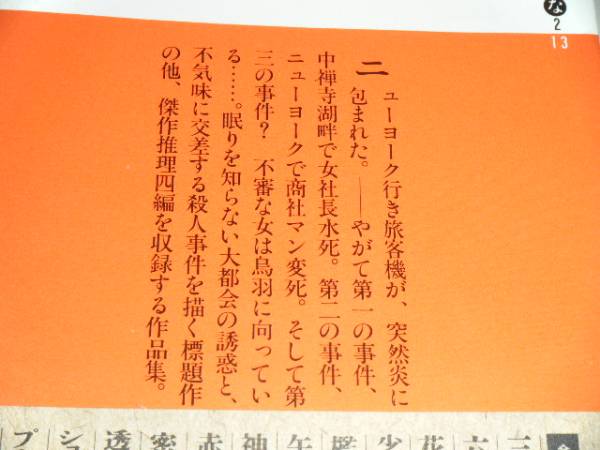 な
2
13
ニューヨーク行き旅客機が、突然炎に
包まれた。――やがて第一の事件、
中禅寺湖畔で女社長水死。第二の事件、
ニューヨークで商社マン変死。そして第
三の事件？　不審な女は鳥羽に向ってい
る……。眠りを知らない大都会の誘惑と、
不気味に交差する殺人事件を描く標題作
の他、傑作推理四編を収録する作品集。
三
六
花
少
檻
午
神
赤
密
透
シ
プ